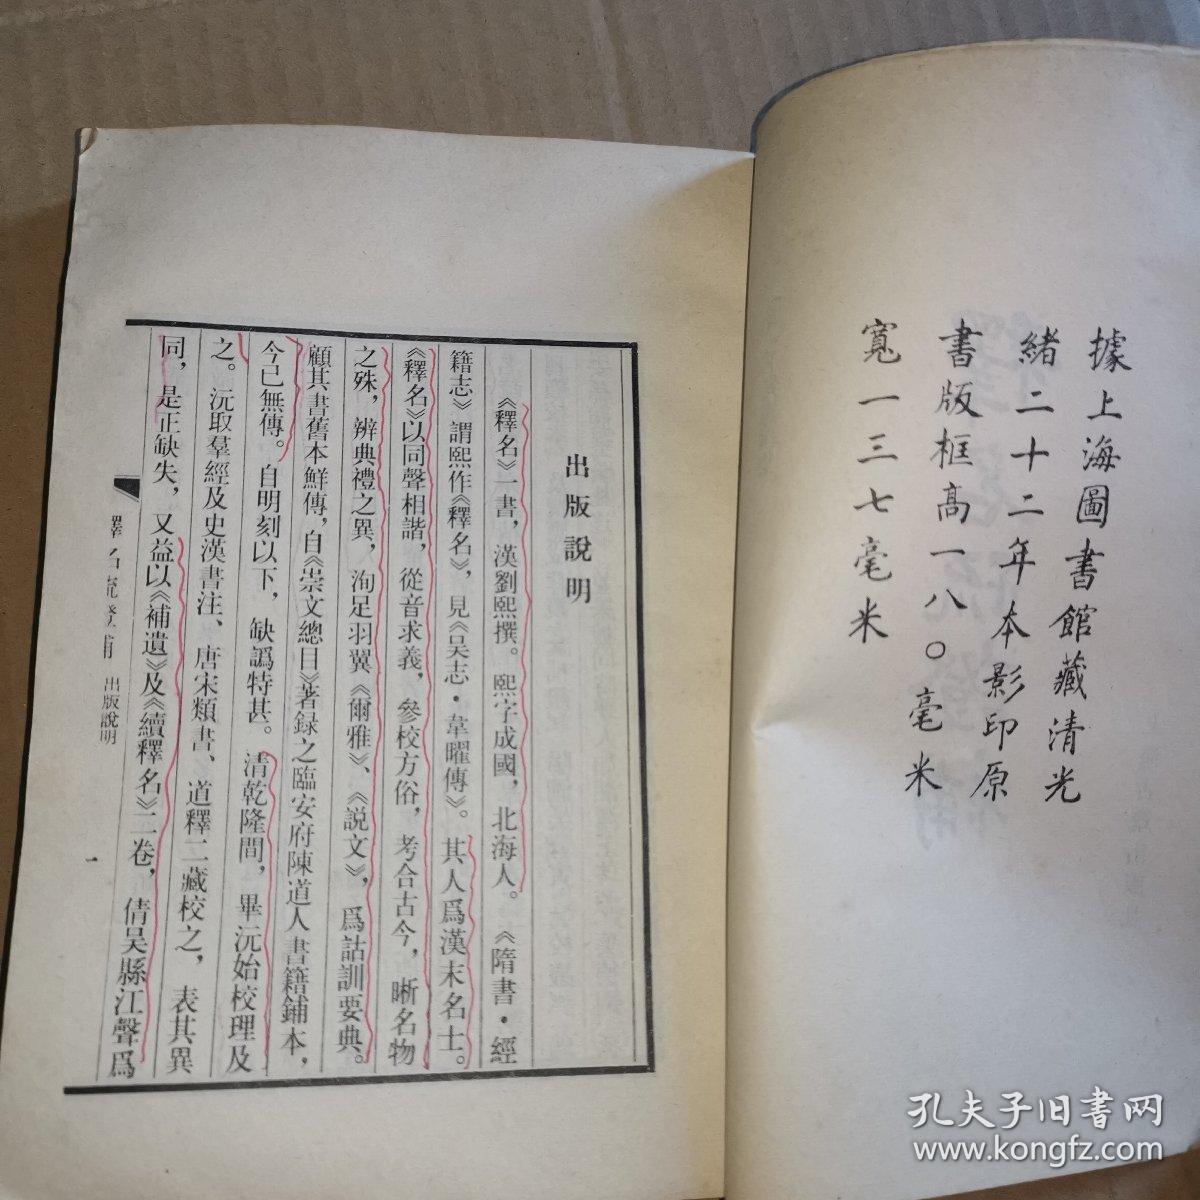 據上海圖書館藏清光
緒二十二年本影印原
書版框高一八〇毫米
寬一三七毫米
出版說明
《釋名》一書，漢劉熙撰。熙字成國，北海人。《隋書·經
籍志》謂熙作《釋名》，見《吴志·韋曜傳》。其人爲漢末名士。
《釋名》以同聲相諧，從音求義，參校方俗，考合古今，晰名物
之殊，辨典禮之異，洵足羽翼《爾雅》、《説文》，爲詁訓要典。
顧其書舊本鮮傳，自《崇文總目》著録之臨安府陳道人書籍鋪本，
今已無傳。自明刻以下，缺譌特甚。清乾隆間，畢沅始校理及
之。沅取羣經及史漢書注、唐宋類書、道釋二藏校之，表其異
同，是正缺失，又益以《補遺》及《續釋名》二卷，倩吴縣江聲爲
釋名疏證補 出版說明
一
孔夫子旧书网
www.kongfz.com